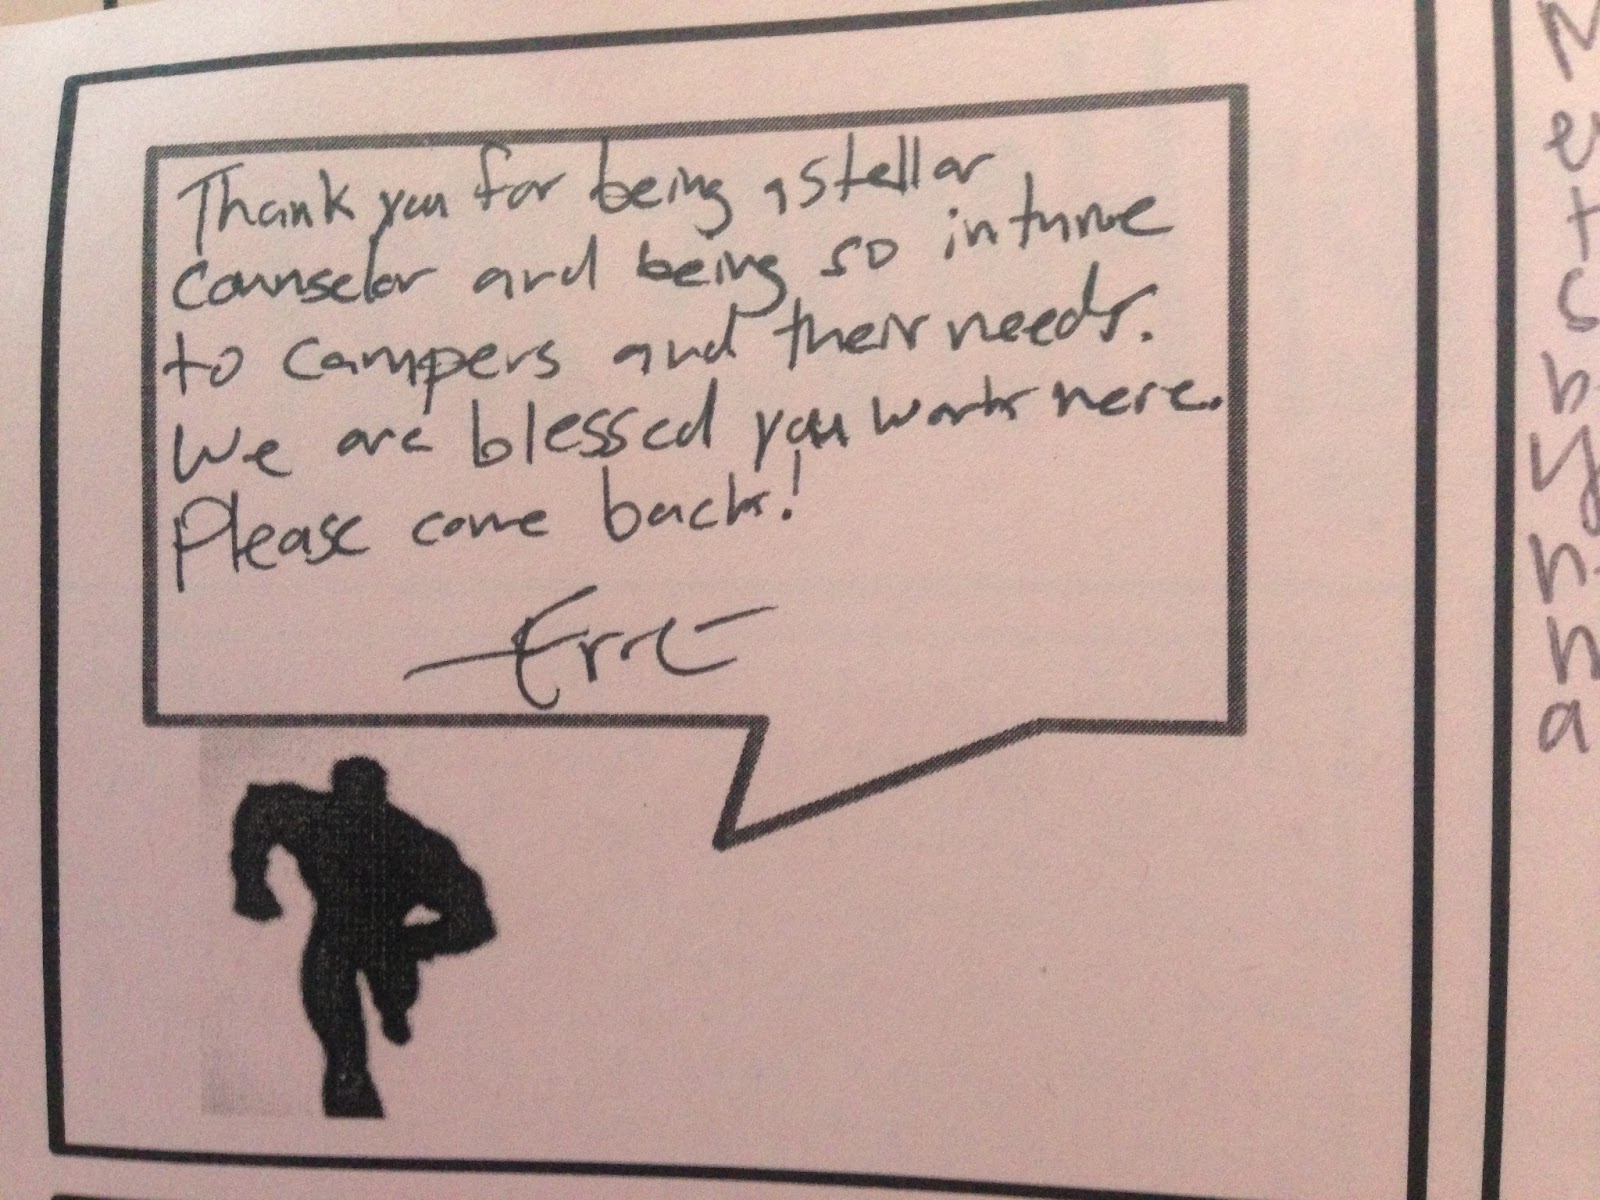 Thank you for being a stellar
counselor and being so in tune
to campers and their needs.
We are blessed you work here.
Please come back!